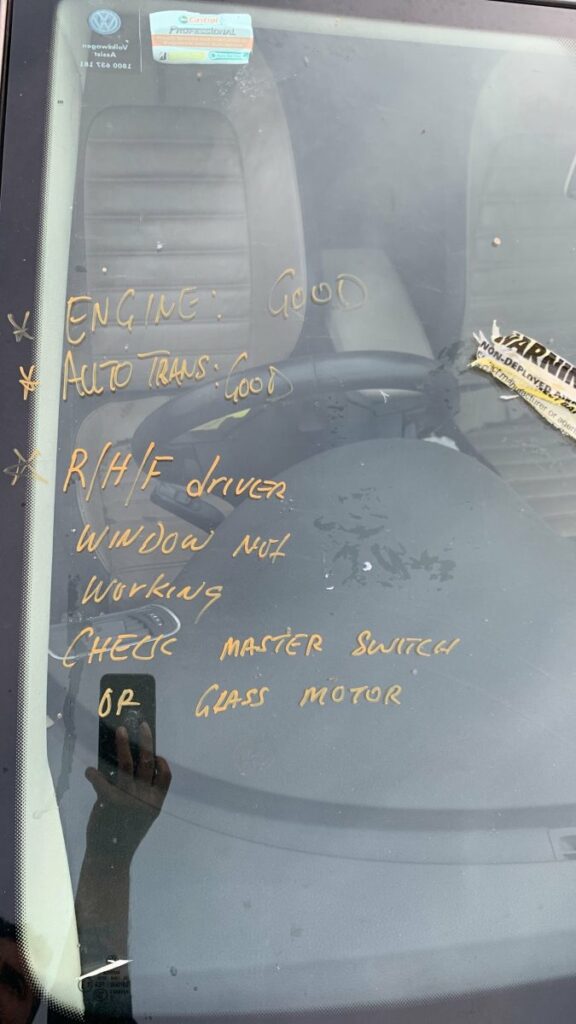 Volkswagen
Assist
1800 637 181
Castrol
PROFESSIONAL
* ENGINE: GOOD
* AUTO TRANS: GOOD
* R/H/F driver
WINDOW Not
Working
CHECK MASTER SWITCH
OR GLASS MOTOR
WARNIN
NON-DEPLOYED
manufacturer or agen